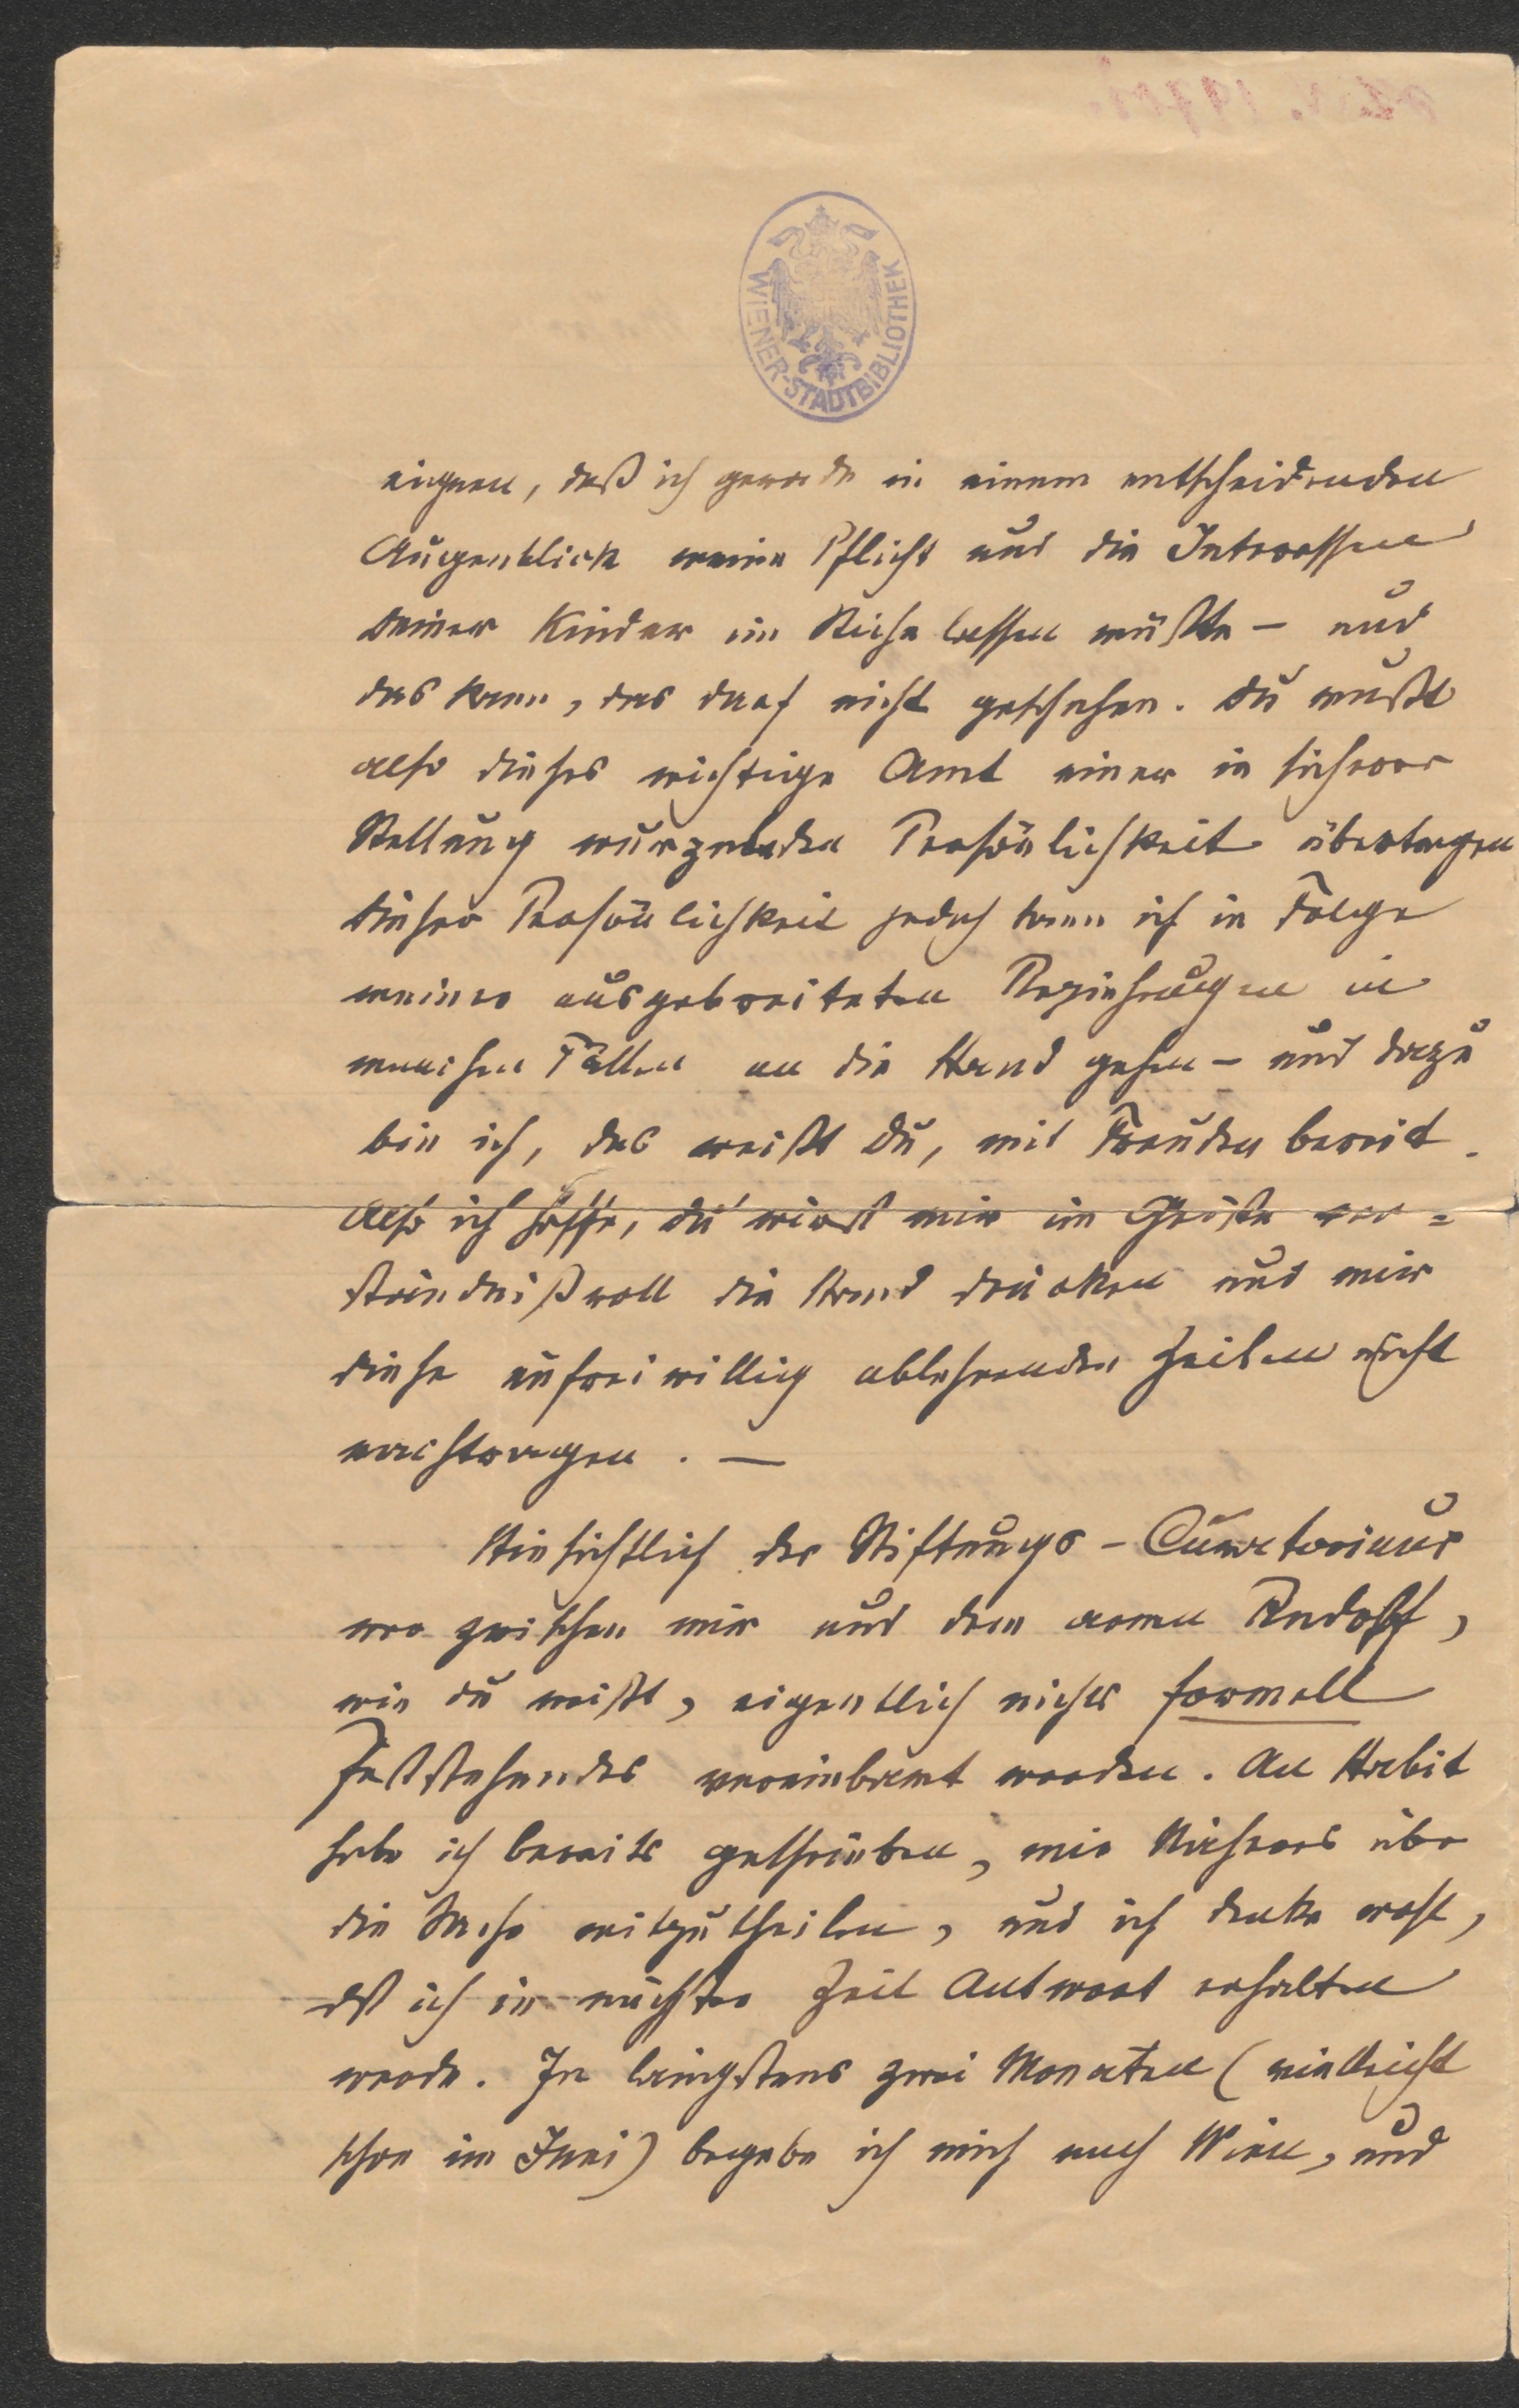 WIENER-STADTBIBLIOTHEK
eignen, daß ich gerade in einem entscheidenden
Augenblick meine Pflicht und die Interessen
Deiner Kinder im Stiche lassen müßte – und
das kann, das darf nicht geschehen. Du mußt
also dieses wichtige Amt einer in sicherer
Stellung wurzelnden Persönlichkeit übertragen
dieser Persönlichkeit jedoch kann ich in Folge
meiner ausgebreiteten Beziehungen in
manchen Fällen an die Hand gehen – und dazu
bin ich, das weißt Du, mit Freuden bereit.
Also ich hoffe, Du wirst mir im Geiste ver=
ständnißvoll die Hand drücken und mir
diese unfreiwillig ablehnenden Zeilen nicht
nachtragen. —
Hinsichtlich des Stiftungs-Curatoriums
war zwischen mir und dem armen Rudolf,
wie Du weißt, eigentlich nichts formell
Feststehendes vereinbart worden. An
habe ich bereits geschrieben, mir Näheres über
die Sache mitzutheilen, und ich denke wohl,
dß ich in nächster Zeit Antwort erhalten
werde. In längstens zwei Monaten (vielleicht
schon im Juni) begebe ich mich nach Wien, und